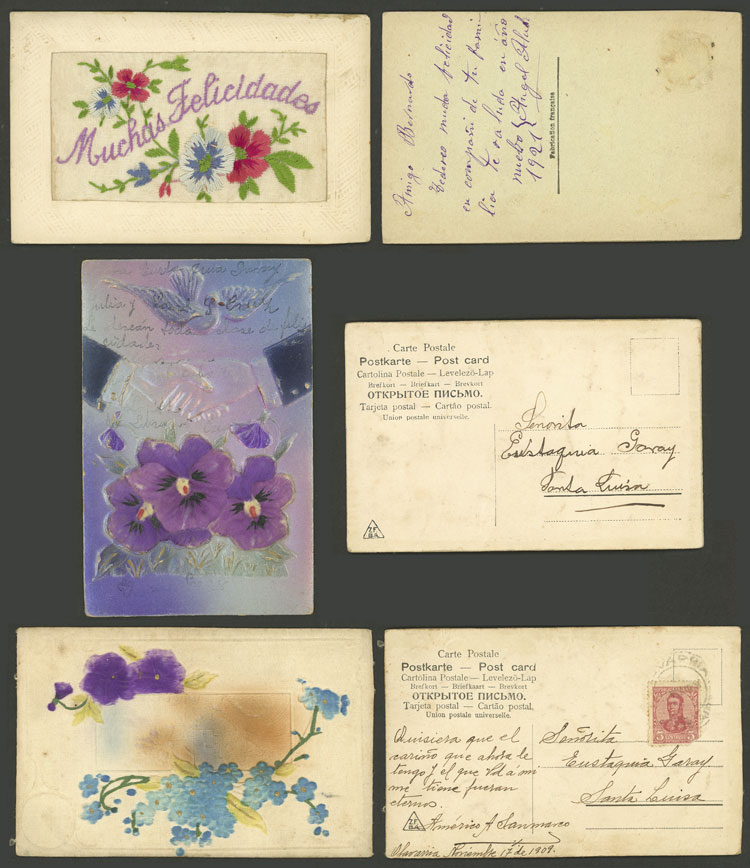 Muchas Felicidades
Amigo Bernardo.
deseo mucha felicidad
en compañia de tu fami-
lia te saluda en año
nuevo Angel
1921
Fabrication française
Julia y
desean toda clase de feli
cidades
Carte Postale
Postkarte — Post card
Cartolina Postale — Levelező-Lap
Brefkort — Briefkaart — Brevkort
ОТКРЫТОЕ ПИСЬМО.
Tarjeta postal — Cartão postal.
Union postale universelle.
Señorita
Eustaquia Garay
Santa Luisa
Carte Postale
Postkarte — Post card
Cartolina Postale — Levelező-Lap
Brefkort — Briefkaart — Brevkort
ОТКРЫТОЕ ПИСЬМО.
Tarjeta postal — Cartão postal.
Union postale universelle.
Quisiera que el
cariño que ahora le
tengo y el que Vd á mi
me tiene fueran
eternos.
Américo A Sanmarco
Olavarria, Noviembre 17 de 1909.
5 CENTAVOS 5
Señorita
Eustaquia Garay
Santa Luisa